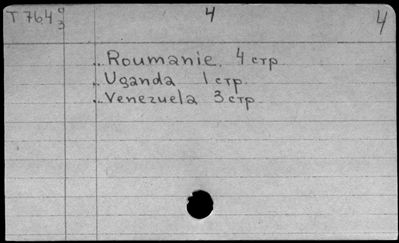 T 764 9/3 4 4
Roumanie. 4 стр.
Uganda 1 стр.
Venezuela 3 стр.